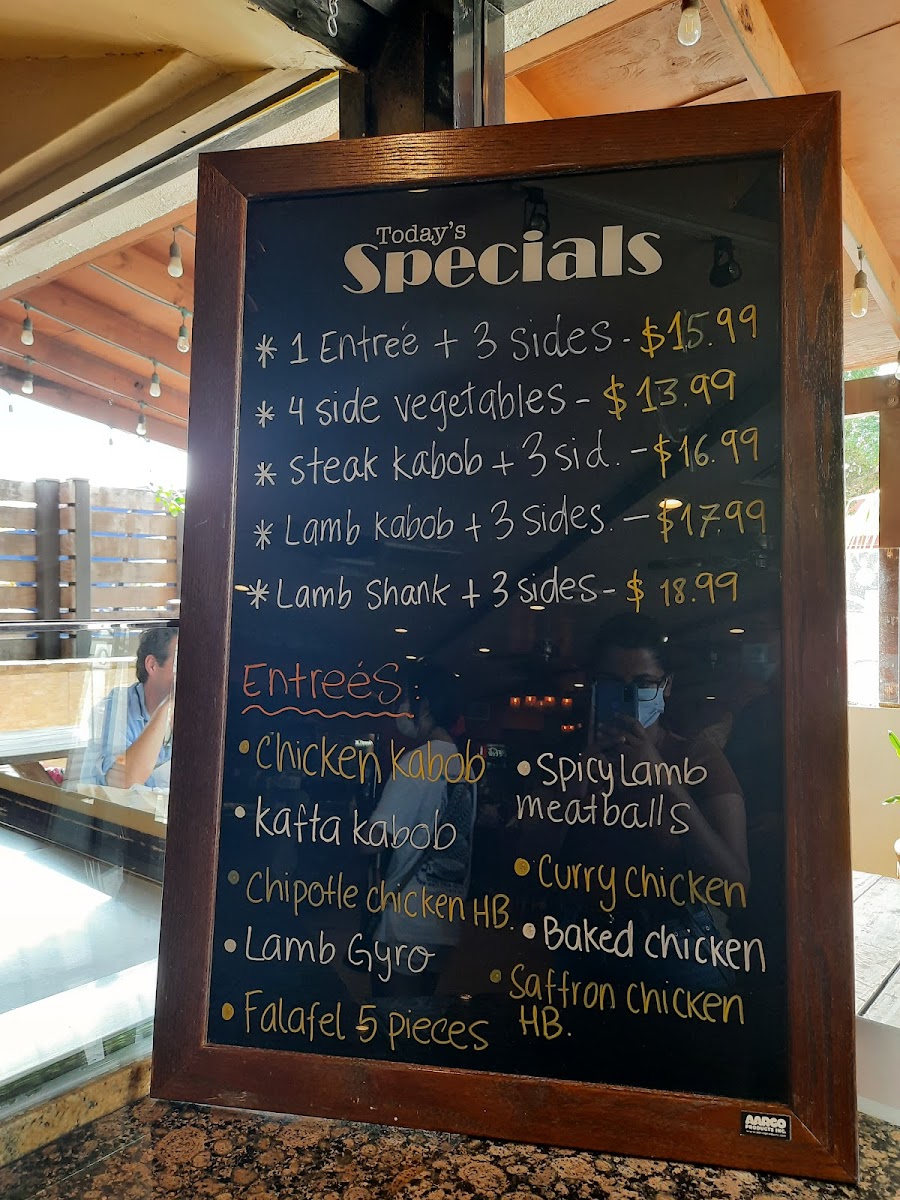 Today's
Specials
* 1 Entreé + 3 sides - $15.99
* 4 side vegetables - $13.99
* Steak Kabob + 3 sid. - $16.99
* Lamb Kabob + 3 sides. - $17.99
* Lamb Shank + 3 sides - $18.99
Entreés
• Chicken Kabob
• Kafta Kabob
• Chipotle chicken HB.
• Lamb Gyro
• Falafel 5 pieces
• Spicy Lamb
meatballs
• Curry chicken
• Baked chicken
• Saffron chicken
HB.
AARCO
PRODUCTS INC.